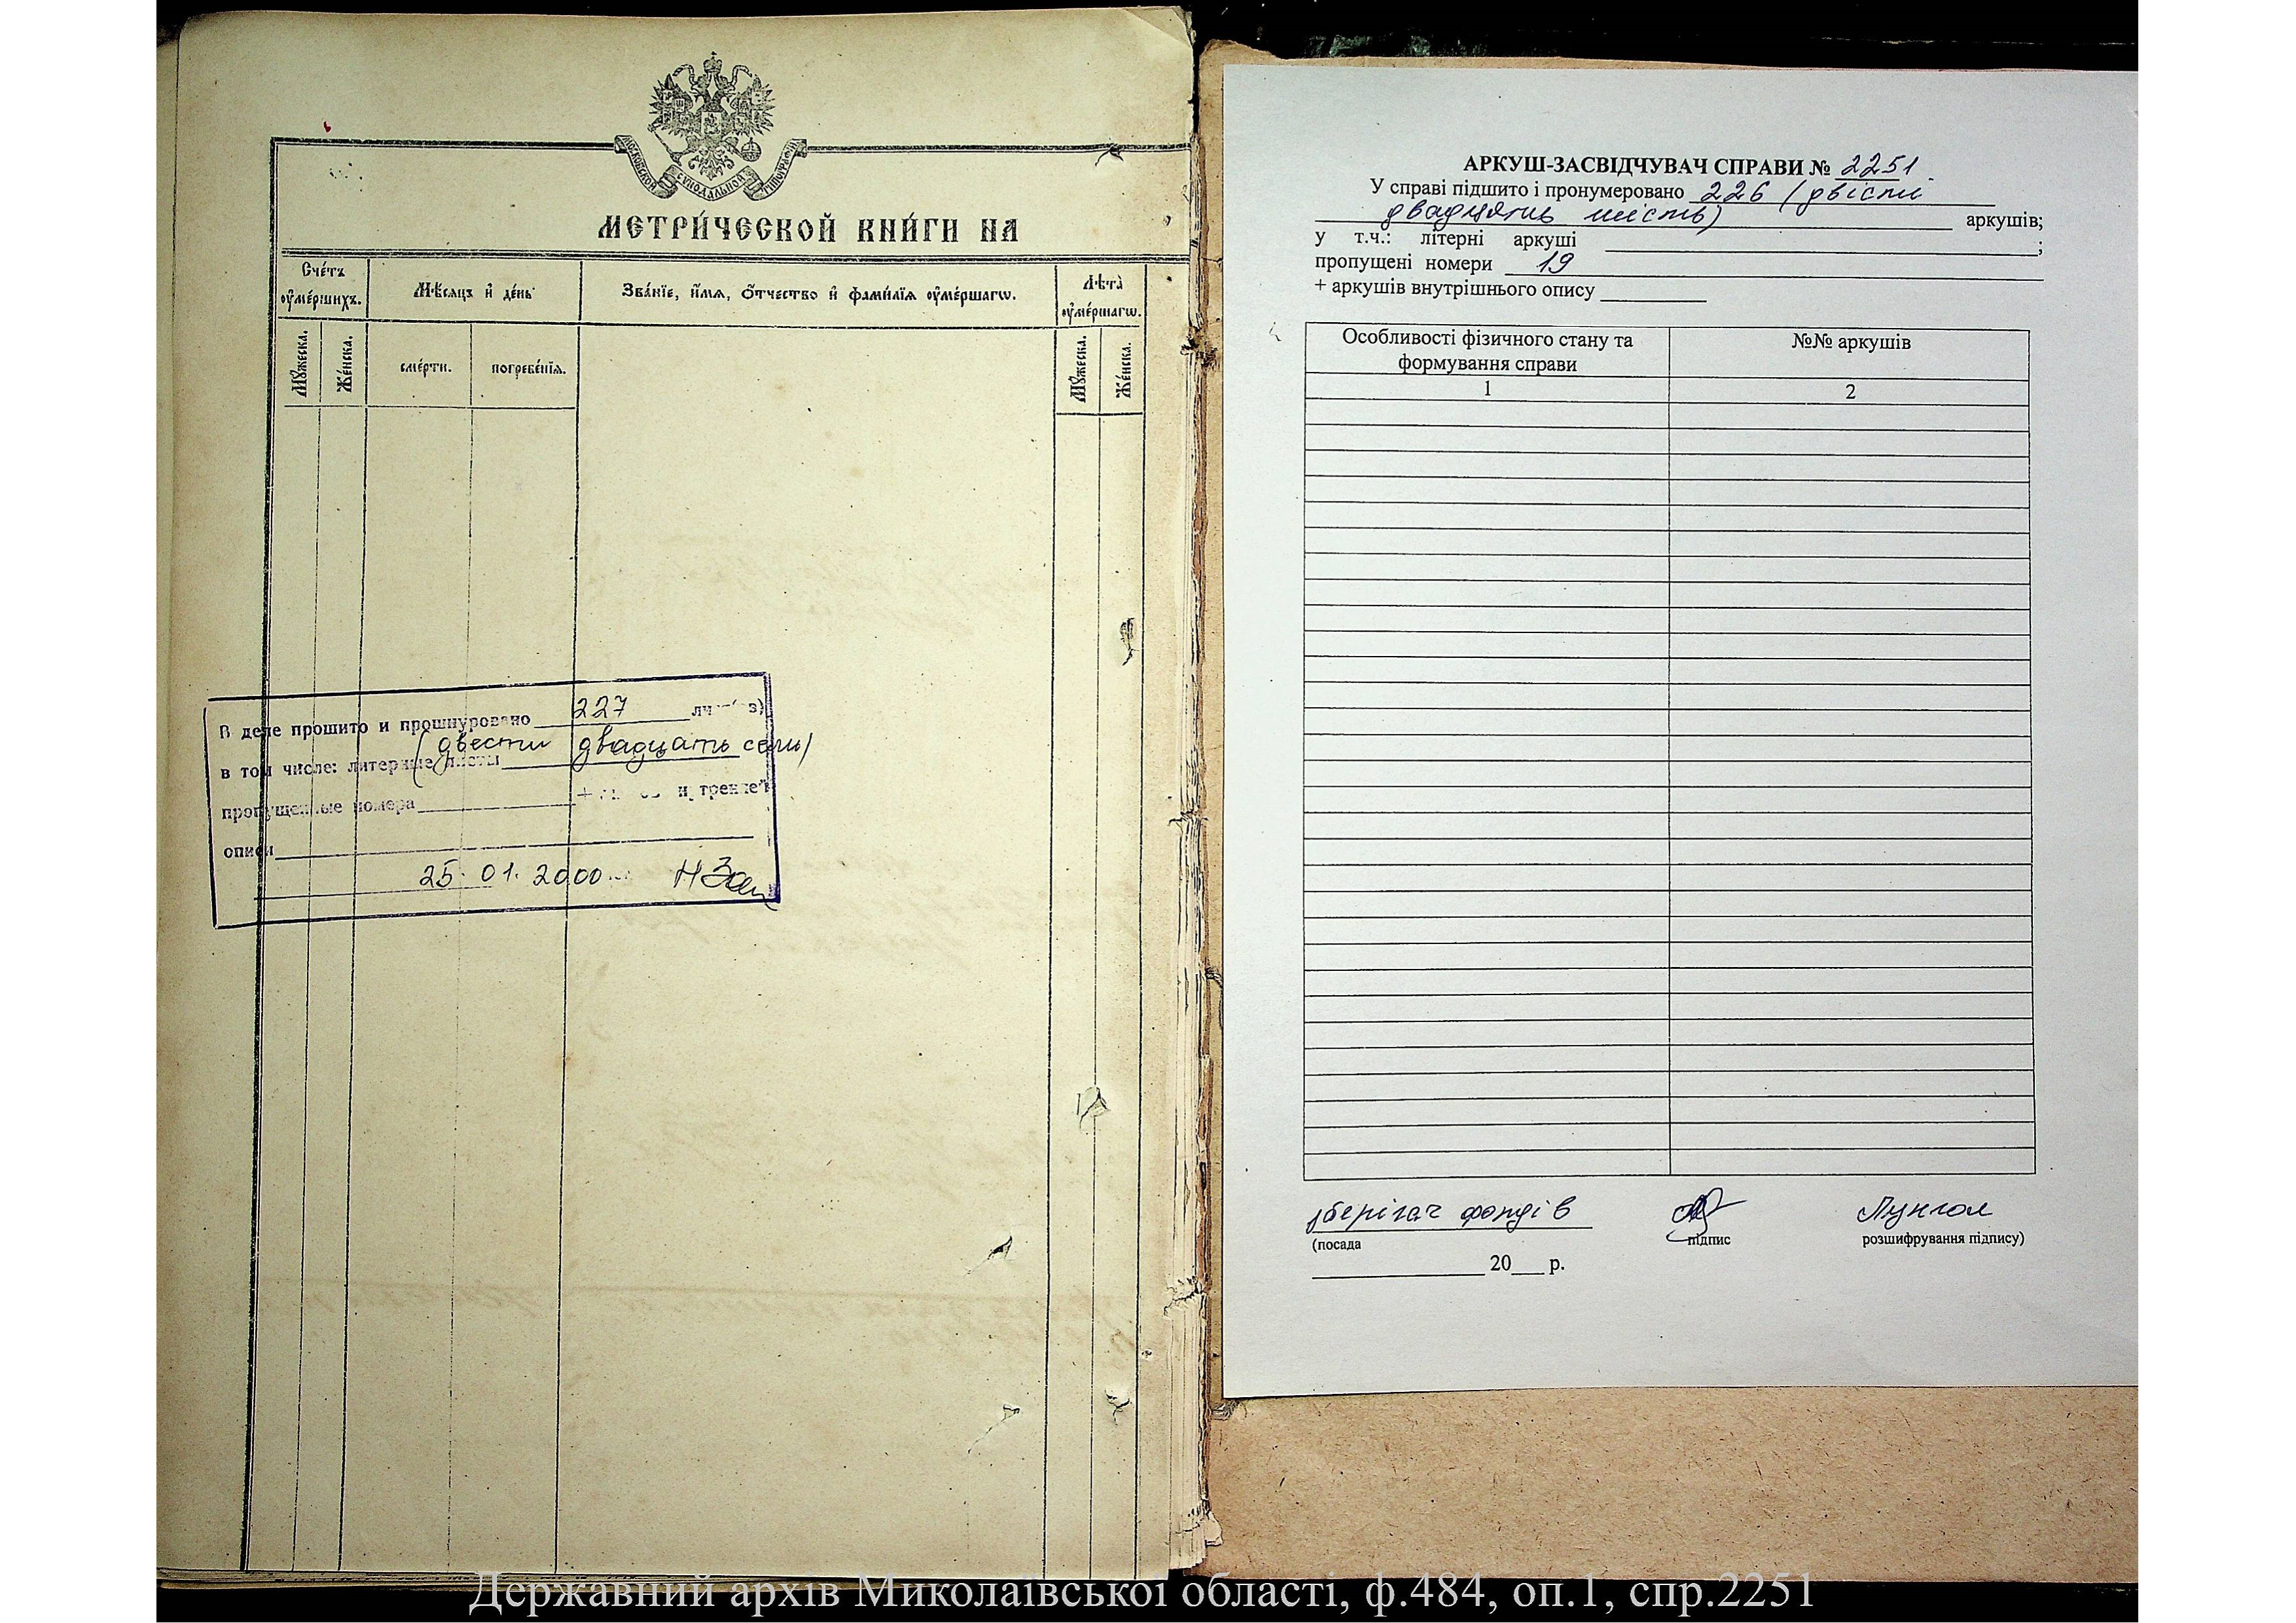 МОСКОВСКОЙ СѴНОДАЛЬНОЙ ТИПОГРАФІИ
МЕТРИ́ЧЕСКОЙ КНИ́ГИ НА
Сче́тъ ᲂу҆ме́ршихъ.
Мѣ́сѧцъ и҆ де́нь
Зва́нїе, и҆́мѧ, ѻ҆́тчество и҆ фами́лїѧ ᲂу҆ме́ршагѡ.
Лѣ́та ᲂу҆ме́ршагѡ.
Мꙋ́жеска.
Же́нска.
сме́рти.
погребе́нїѧ.
Мꙋ́жеска.
Же́нска.
В деле прошито и прошнуровано 227
(двести двадцать семь)
в том числе: литерные листы
пропущенные номера
описи
25.01.2000
АРКУШ-ЗАСВІДЧУВАЧ СПРАВИ № 2251
У справі підшито і пронумеровано 226 (двісти
двадцять шість) аркушів;
у т.ч.: літерні аркуші ;
пропущені номери 19
+ аркушів внутрішнього опису
Особливості фізичного стану та формування справи
№№ аркушів
1 2
зберігач фондів
(посада підпис розшифрування підпису)
20 р.
Державний архів Миколаївської області, ф.484, оп.1, спр.2251